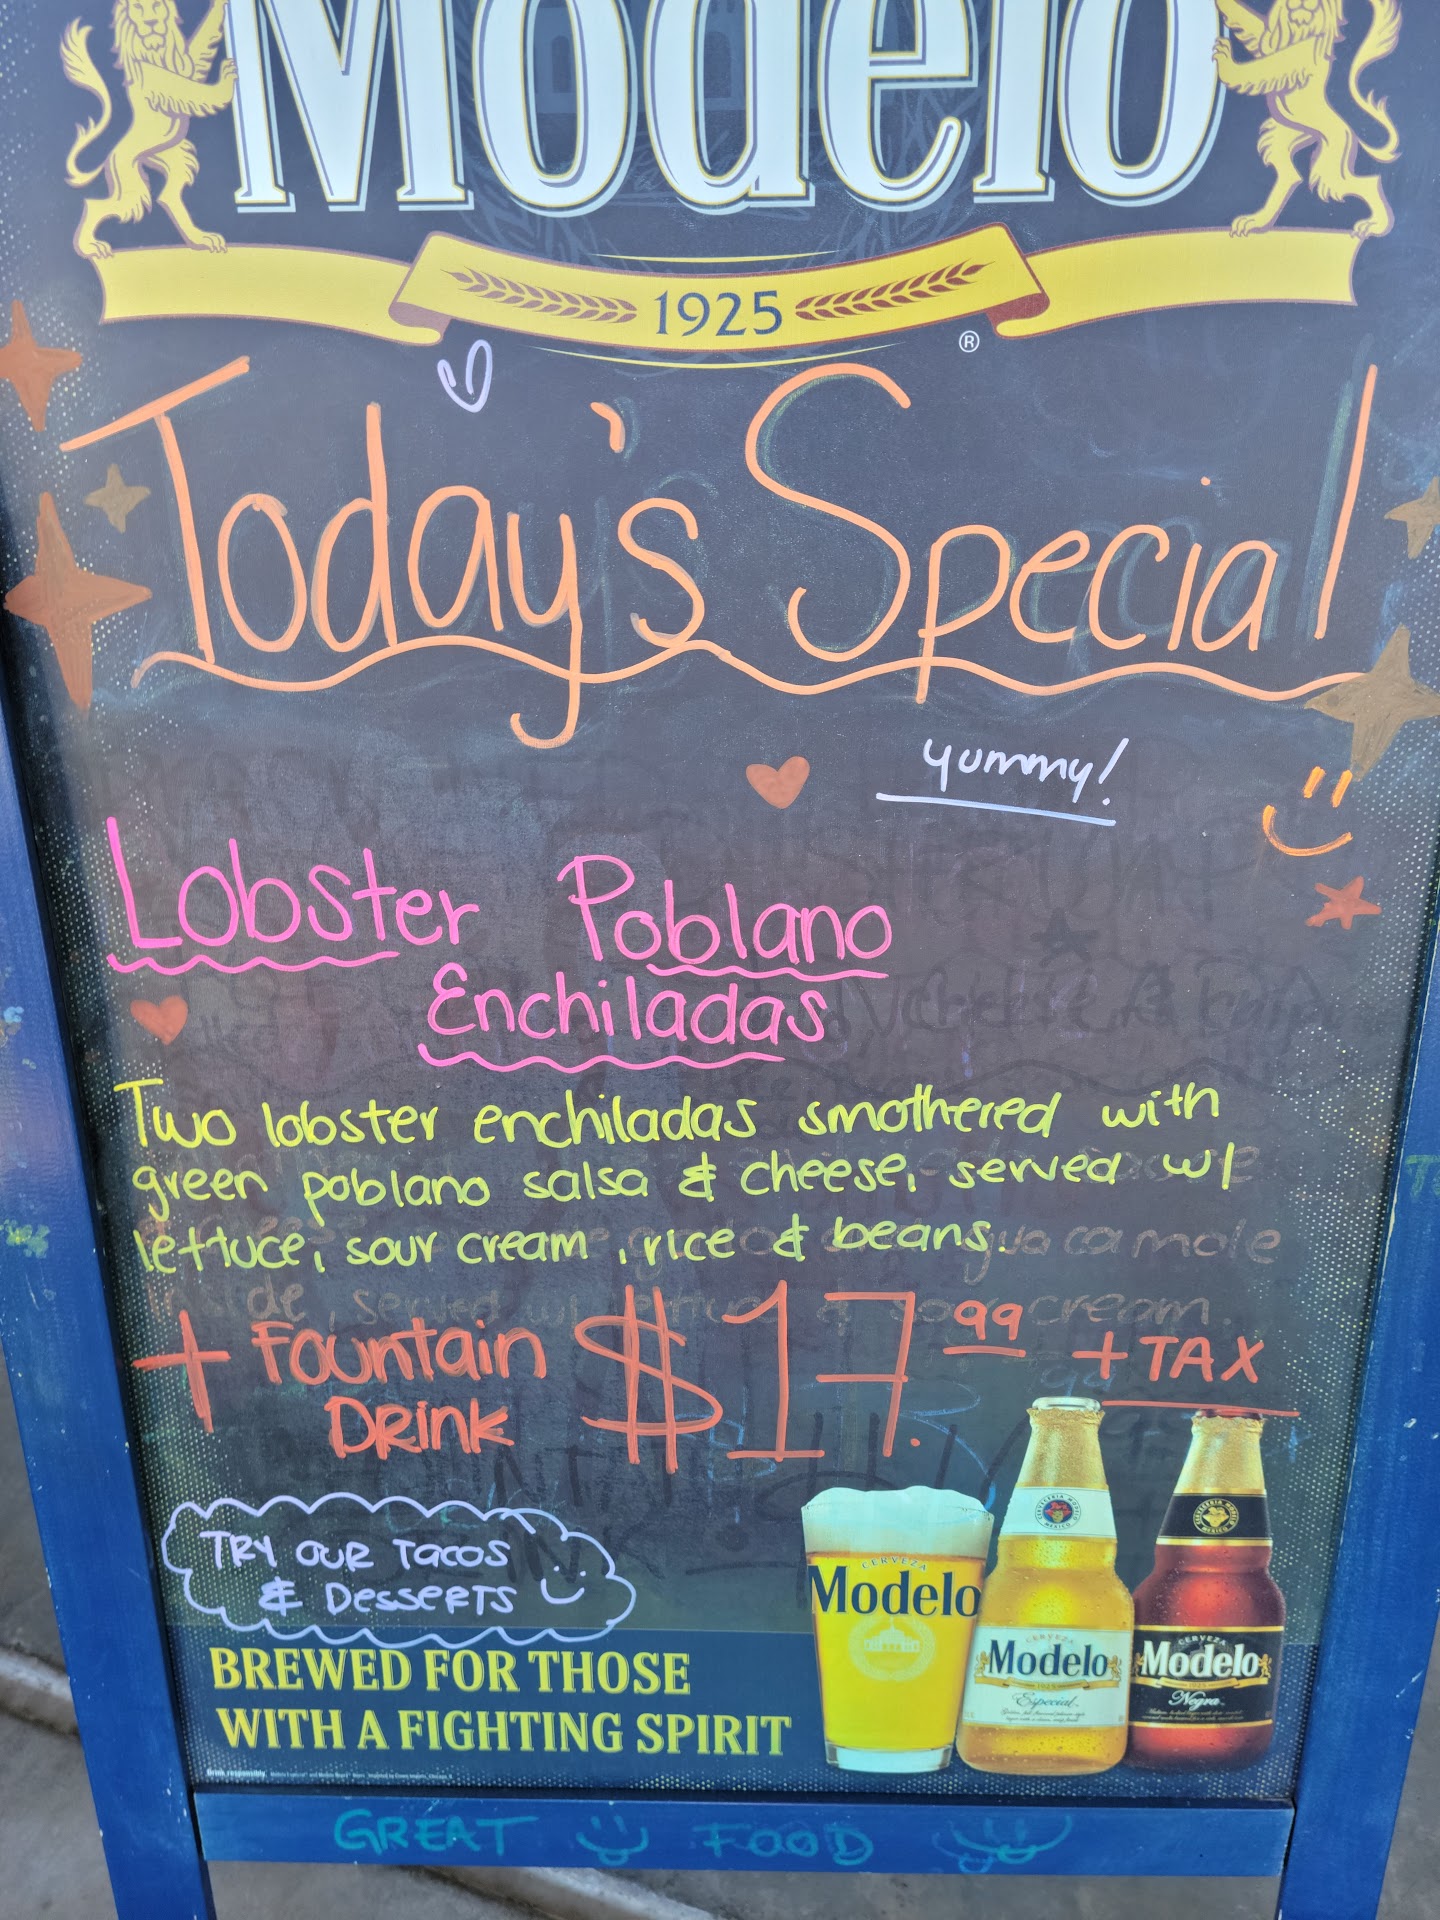 Modelo
1925
®
Today's Special
yummy!
Lobster Poblano
Enchiladas
Two lobster enchiladas smothered with
green poblano salsa & cheese, served w/
lettuce, sour cream, rice & beans.
guacamole
inside, served w/ lettuce & sour cream.
+ Fountain Drink $17.99 + TAX
TRY OUR TACOS
& DESSERTS
CERVEZA
Modelo
CERVEZA
Modelo
Especial
CERVEZA
Modelo
Negra
BREWED FOR THOSE
WITH A FIGHTING SPIRIT
Drink responsibly.
GREAT FOOD